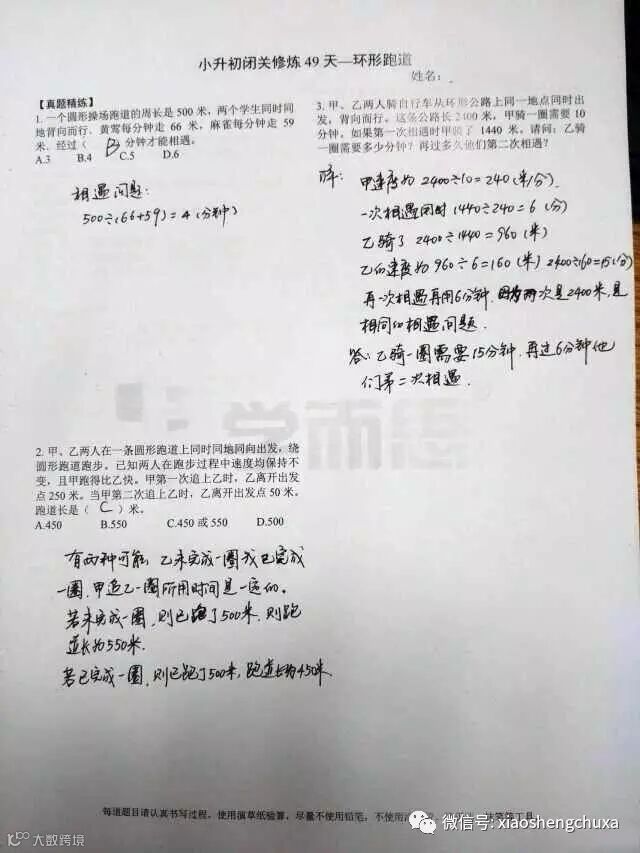 小升初闭关修炼 49 天—环形跑道
姓名：
【真题精练】
1. 一个圆形操场跑道的周长是 500 米，两个学生同时同
地背向而行．黄莺每分钟走 66 米，麻雀每分钟走 59
米．经过（ B ）分钟才能相遇。
A.3 B.4 C.5 D.6
相遇问题：
500÷(66+59)=4（分钟）
2. 甲、乙两人在一条圆形跑道上同时同地同向出发，绕
圆形跑道跑步。已知两人在跑步过程中速度均保持不
变，且甲跑得比乙快。甲第一次追上乙时，乙离开出发
点 250 米。当甲第二次追上乙时，乙离开出发点 50 米。
跑道长是（ C ）米。
A.450 B.550 C.450 或 550 D.500
有两种可能，乙未完成一圈或已完成
一圈，甲追乙一圈所用时间是一定的。
若未完成一圈，则已跑了500米，则跑
道长为550米.
若已完成一圈，则已跑了500米，跑道长为450米
3. 甲、乙两人骑自行车从环形公路上同一地点同时出
发，背向而行。这条公路长 2400 米，甲骑一圈需要 10
分钟。如果第一次相遇时甲骑了 1440 米。请问：乙骑
一圈需要多少分钟？再过多久他们第二次相遇？
解：甲速度为 2400÷10=240（米/分）.
一次相遇用时 1440÷240=6（分）
乙骑了 2400÷1440=960（米）
乙的速度为 960÷6=160（米）2400÷160=15（分）
再一次相遇再用6分钟．因为两次是2400米，是
相同的相遇问题．
答：乙骑一圈需要15分钟．再过6分钟他
们第二次相遇．
学而思
每道题目请认真书写过程，使用演草纸验算，尽量不使用铅笔，不使用
微信号: xiaoshengchuxa
大数跨境